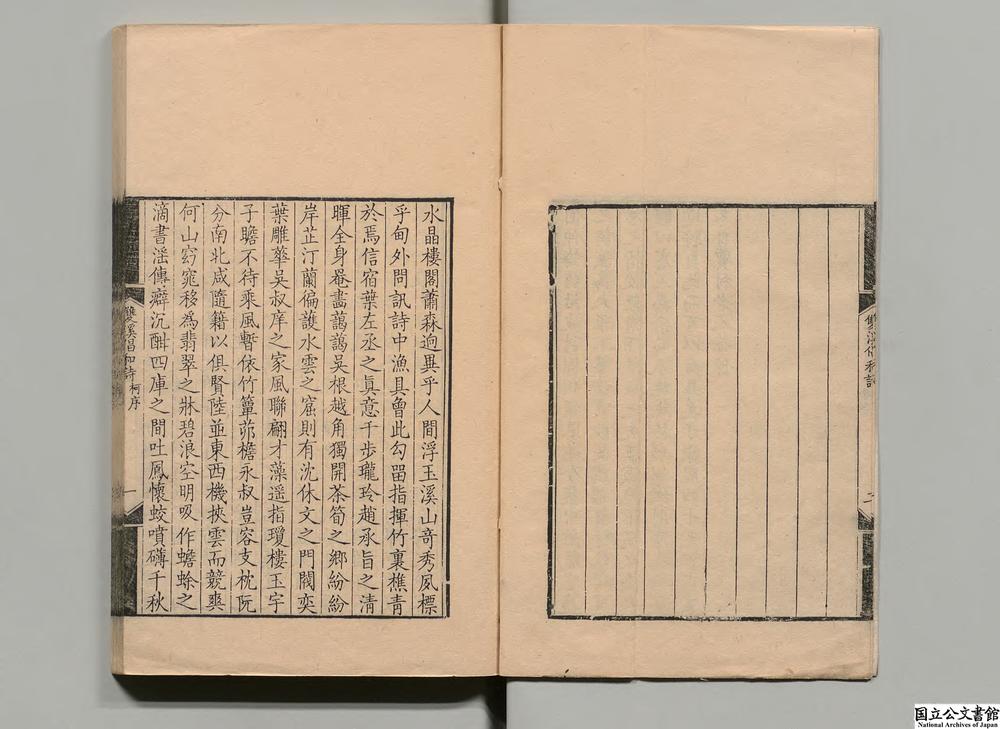 水晶樓閣蕭森迥異乎人間浮玉溪山奇秀夙標
乎甸外問訊詩中漁具曾此勾畱指揮竹裏樵青
於焉信宿葉左丞之眞意千步瓏玲趙承旨之清
暉全身罨畵藹藹吳根越角獨開茶筍之鄉紛紛
岸芷汀蘭徧護水雲之窟則有沈休文之門閥奕
葉雕華吳叔庠之家風聯翩才藻遥指瓊樓玉宇
子瞻不待乘風暫依竹簟茆檐永叔豈容支枕阮
分南北咸隨籍以俱賢陸並東西機挾雲而競爽
何山窈窕移為翡翠之牀碧浪空明吸作蟾蜍之
滴書淫傳癖沉酣四庫之間吐鳳懷蛟噴礴千秋
雙溪倡和詩 柯序
一
雙溪倡和詩
二
国立公文書館
National Archives of Japan